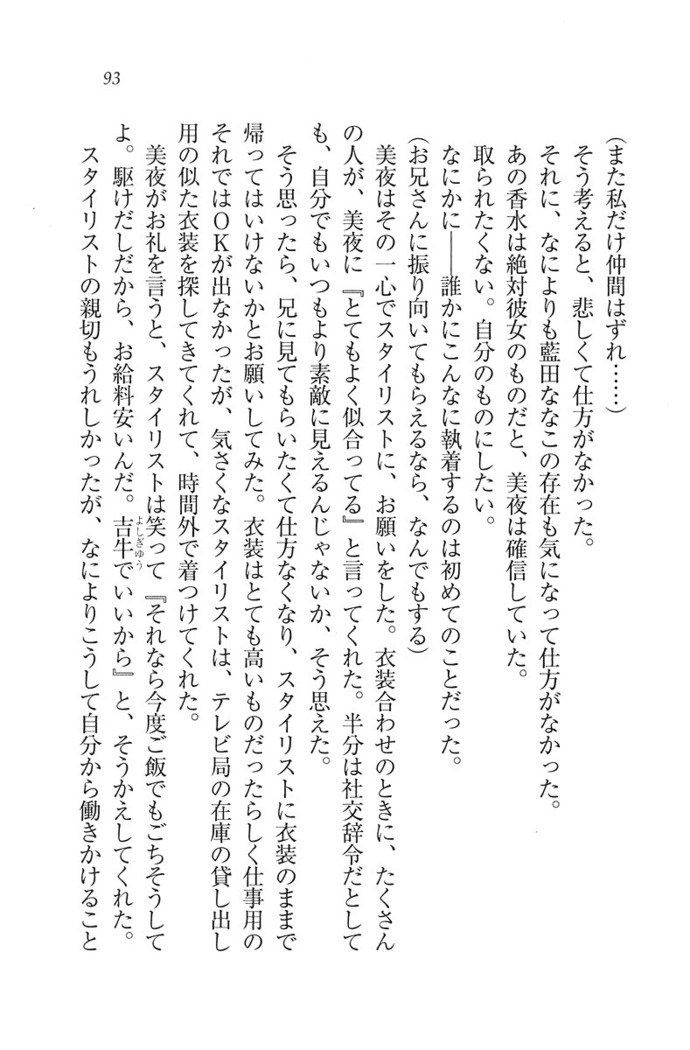 93
(また私だけ仲間はずれ……)
そう考えると、悲しくて仕方がなかった。
それに、なによりも藍田ななこの存在も気になって仕方がなかった。
あの香水は絶対彼女のものだと、美夜は確信していた。
取られたくない。自分のものにしたい。
なにかに――誰かにこんなに執着するのは初めてのことだった。
(お兄さんに振り向いてもらえるなら、なんでもする)
美夜はその一心でスタイリストに、お願いをした。衣装合わせのときに、たくさん
の人が、美夜に『とてもよく似合ってる』と言ってくれた。半分は社交辞令だとして
も、自分でもいつもより素敵に見えるんじゃないか、そう思えた。
そう思ったら、兄に見てもらいたくて仕方なくなり、スタイリストに衣装のままで
帰ってはいけないかとお願いしてみた。衣装はとても高いものだったらしく仕事用の
それではOKが出なかったが、気さくなスタイリストは、テレビ局の在庫の貸し出し
用の似た衣装を探してきてくれて、時間外で着つけてくれた。
美夜がお礼を言うと、スタイリストは笑って『それなら今度ご飯でもごちそうして
よ。駆けだしだから、お給料安いんだ。吉牛でいいから』と、そうかえしてくれた。
よしぎゅう
スタイリストの親切もうれしかったが、なによりこうして自分から働きかけること